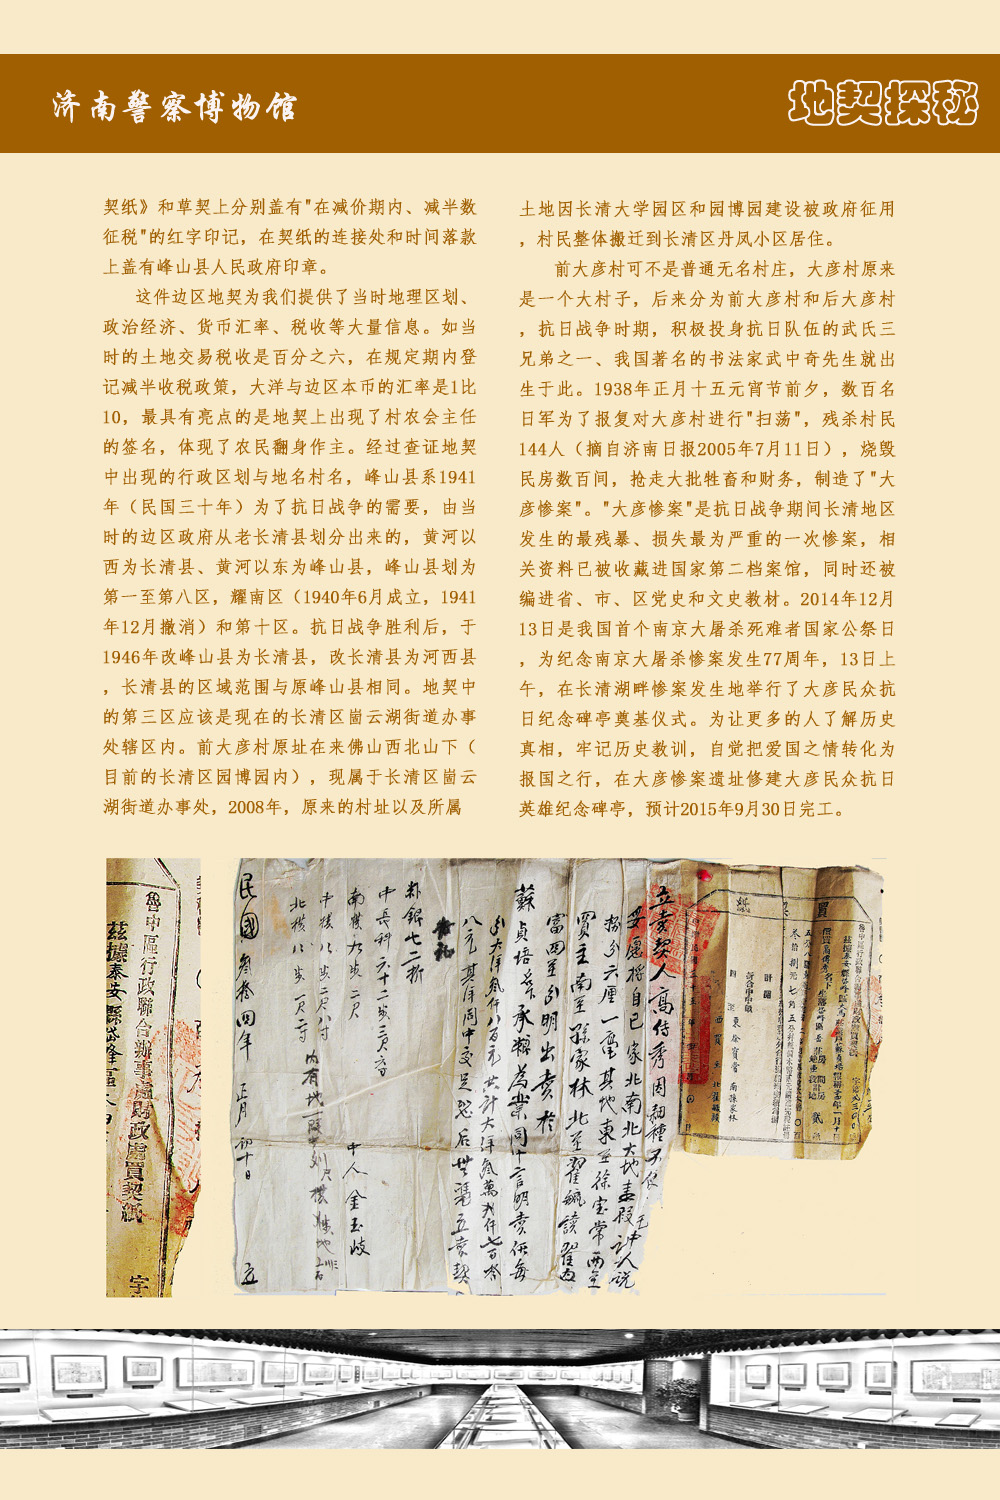 济南警察博物馆
地契探秘
契纸》和草契上分别盖有"在减价期内、减半数
征税"的红字印记，在契纸的连接处和时间落款
上盖有峰山县人民政府印章。
这件边区地契为我们提供了当时地理区划、
政治经济、货币汇率、税收等大量信息。如当
时的土地交易税收是百分之六，在规定期内登
记减半收税政策，大洋与边区本币的汇率是1比
10，最具有亮点的是地契上出现了村农会主任
的签名，体现了农民翻身作主。经过查证地契
中出现的行政区划与地名村名，峰山县系1941
年（民国三十年）为了抗日战争的需要，由当
时的边区政府从老长清县划分出来的，黄河以
西为长清县、黄河以东为峰山县，峰山县划为
第一至第八区，耀南区（1940年6月成立，1941
年12月撤消）和第十区。抗日战争胜利后，于
1946年改峰山县为长清县，改长清县为河西县
，长清县的区域范围与原峰山县相同。地契中
的第三区应该是现在的长清区崮云湖街道办事
处辖区内。前大彦村原址在来佛山西北山下（
目前的长清区园博园内），现属于长清区崮云
湖街道办事处，2008年，原来的村址以及所属
土地因长清大学园区和园博园建设被政府征用
，村民整体搬迁到长清区丹凤小区居住。
前大彦村可不是普通无名村庄，大彦村原来
是一个大村子，后来分为前大彦村和后大彦村
，抗日战争时期，积极投身抗日队伍的武氏三
兄弟之一、我国著名的书法家武中奇先生就出
生于此。1938年正月十五元宵节前夕，数百名
日军为了报复对大彦村进行"扫荡"，残杀村民
144人（摘自济南日报2005年7月11日），烧毁
民房数百间，抢走大批牲畜和财务，制造了"大
彦惨案"。"大彦惨案"是抗日战争期间长清地区
发生的最残暴、损失最为严重的一次惨案，相
关资料已被收藏进国家第二档案馆，同时还被
编进省、市、区党史和文史教材。2014年12月
13日是我国首个南京大屠杀死难者国家公祭日
，为纪念南京大屠杀惨案发生77周年，13日上
午，在长清湖畔惨案发生地举行了大彦民众抗
日纪念碑亭奠基仪式。为让更多的人了解历史
真相，牢记历史教训，自觉把爱国之情转化为
报国之行，在大彦惨案遗址修建大彦民众抗日
英雄纪念碑亭，预计2015年9月30日完工。
買
紙
立賣契人高传秀因
妥愿将自己家北南北大地
買主南至孫家林北至翟
蘇貞培承糧為業同中言明賣價每
南横九步二尺
中横八步二尺八寸
北横八步一尺二寸
中人金玉岐
民國叁拾四年 正月初十日 立
魯中區行政聯合辦事處財政處買契紙
茲據泰安縣岱峰區